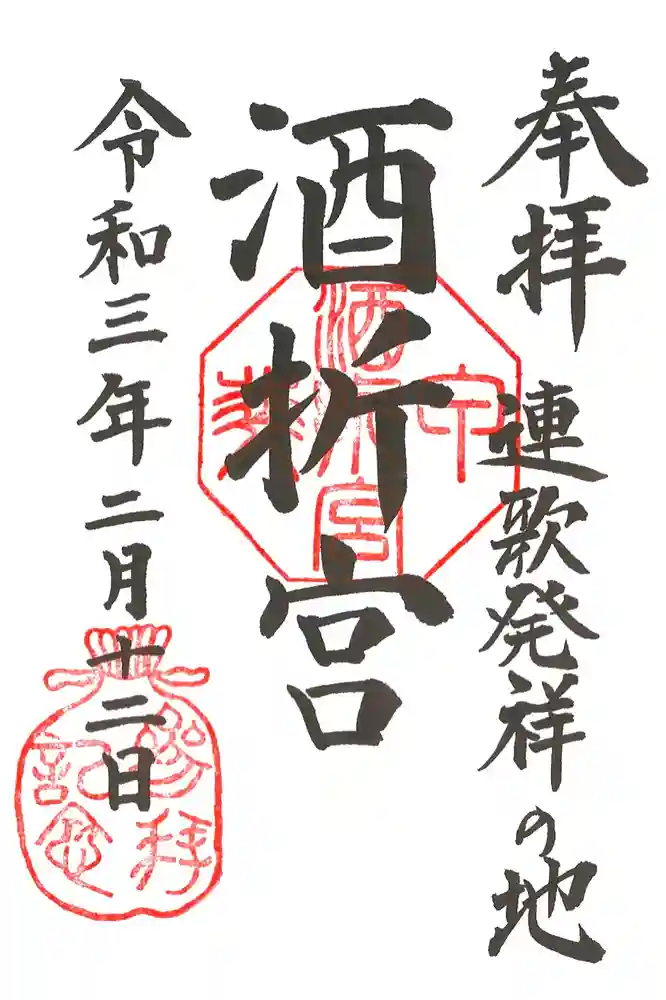 奉拝
連歌発祥の地
酒折宮
令和三年二月十二日
甲斐
酒折宮
参拝
記念